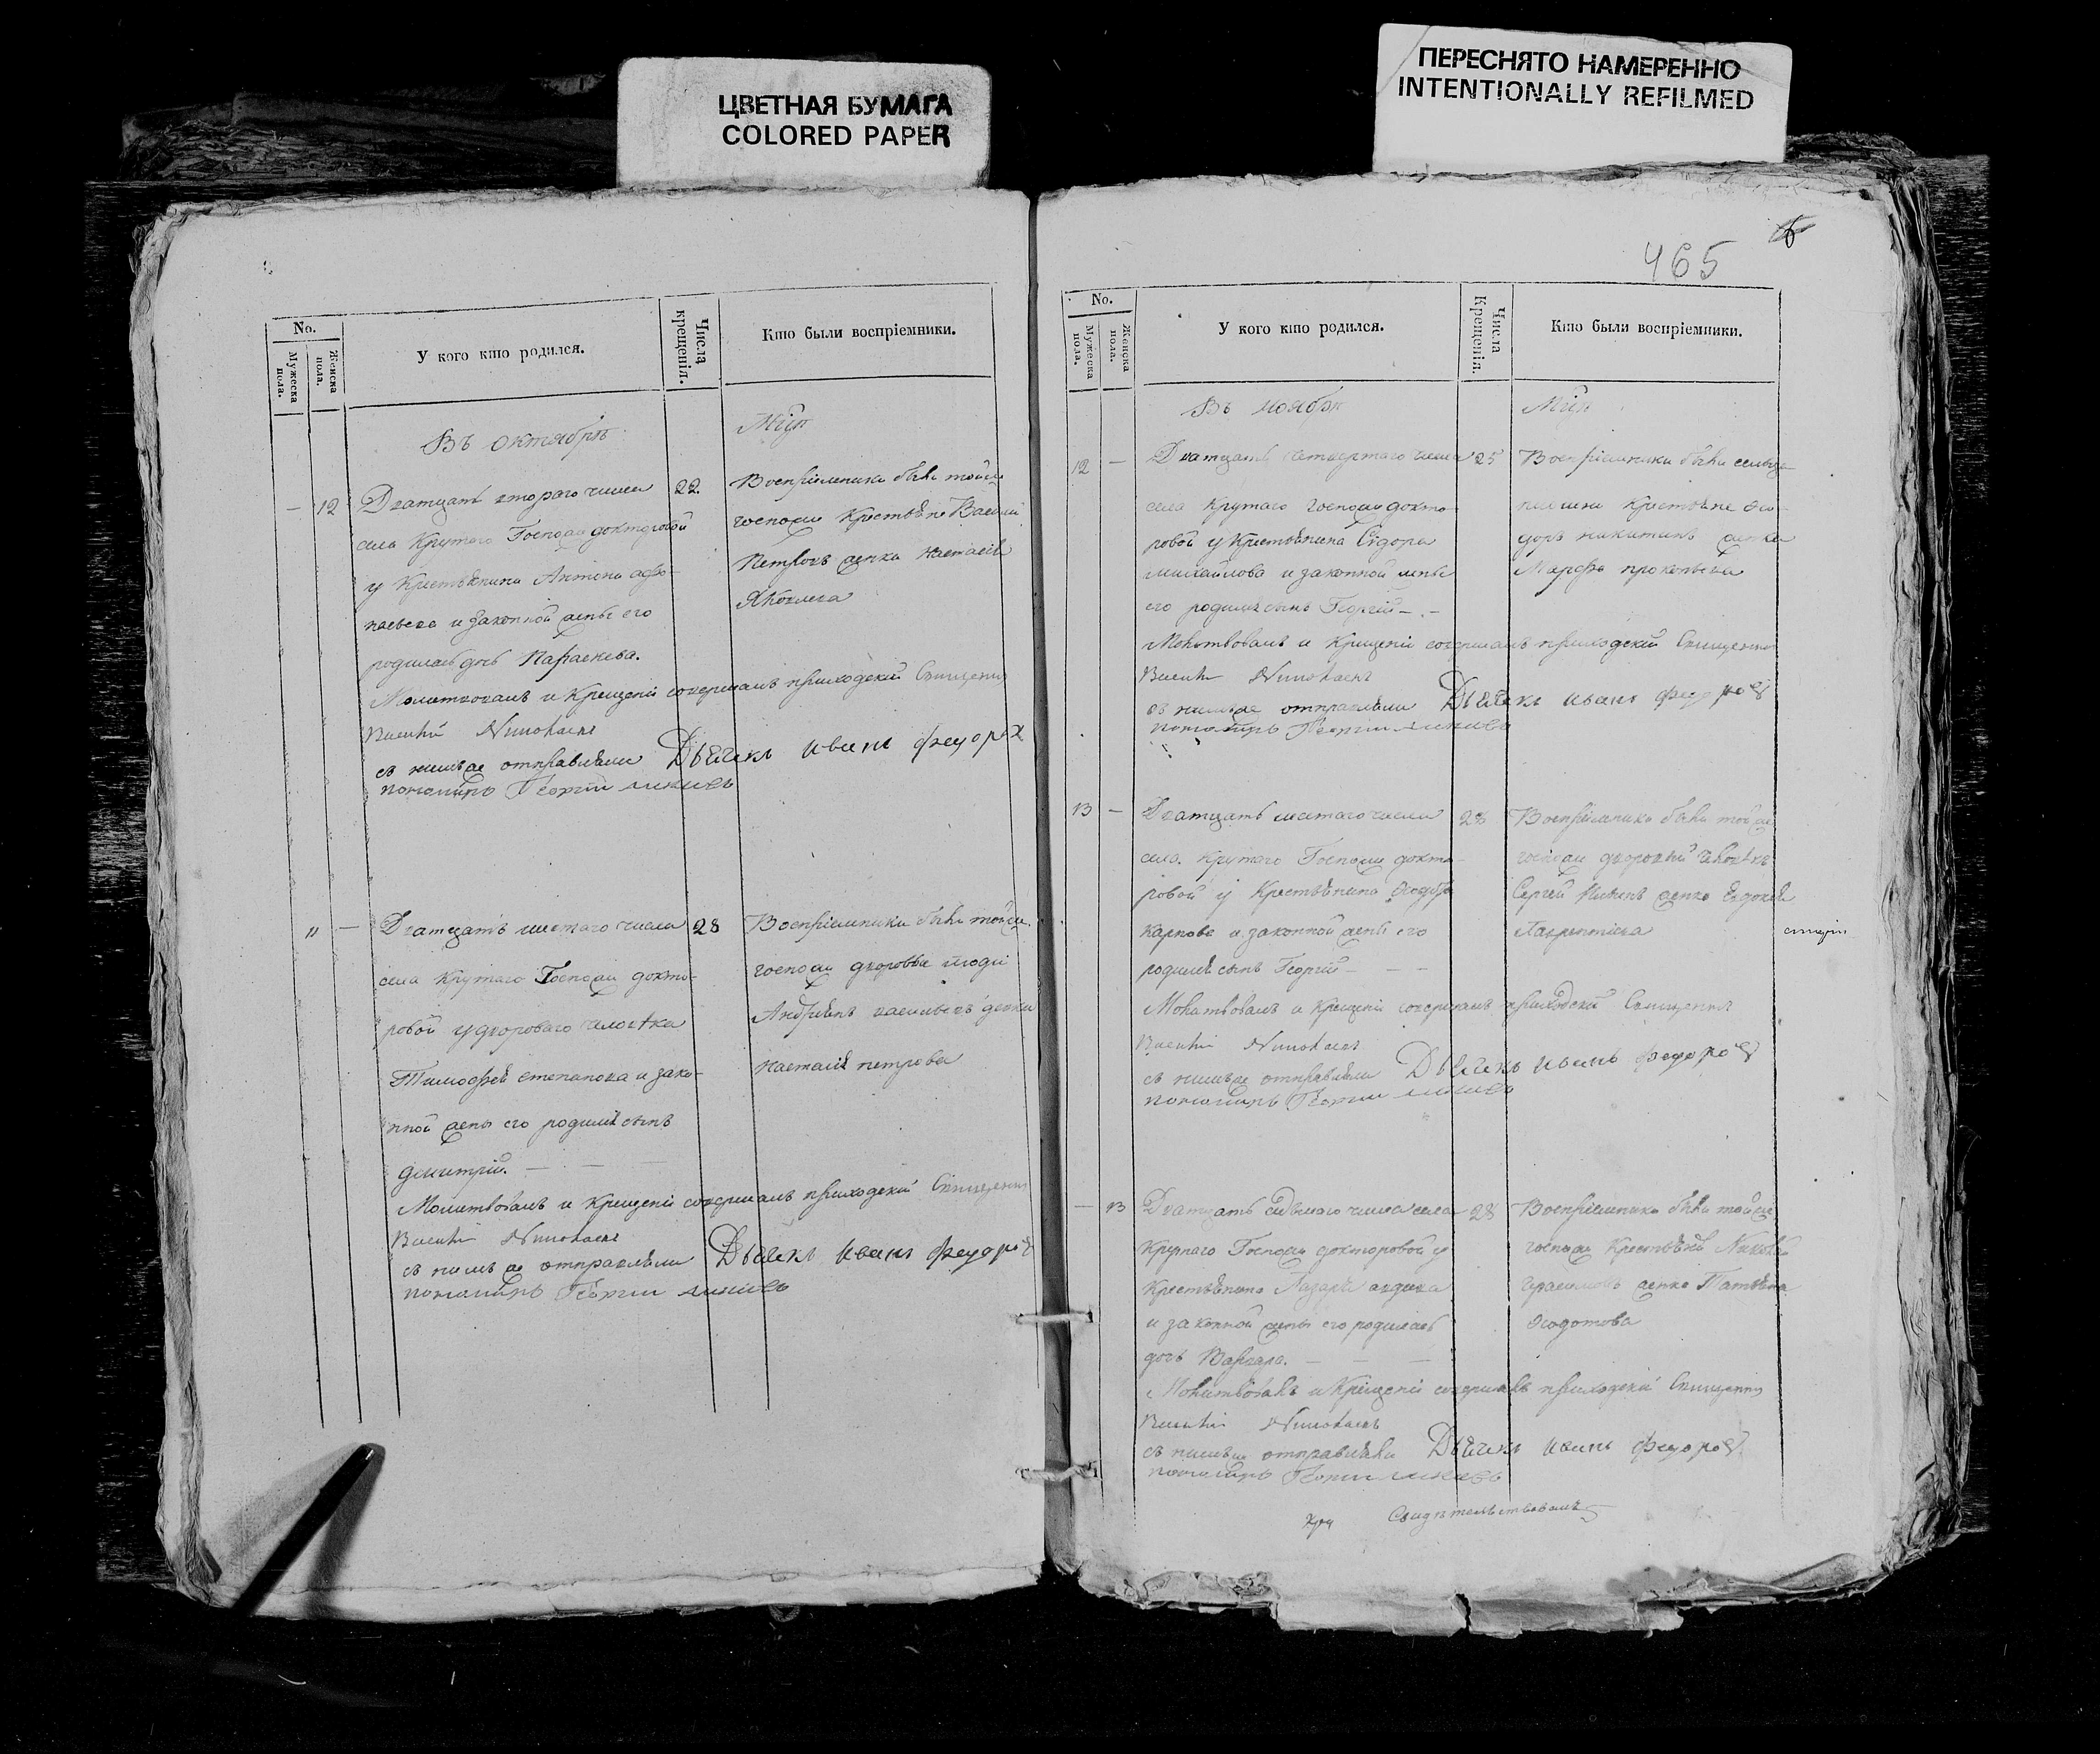 ЦВЕТНАЯ БУМАГА
COLORED PAPER
ПЕРЕСНЯТО НАМЕРЕННО
INTENTIONALLY REFILMED
No.
Мужеска пола.
Женска пола.
У кого кто родился.
Числа крещенія.
Кто были воспріемники.
Въ октябрѣ
12
22
Дватцать втораго числа
села Крутаго Господи докторовой
у Крестьянина Антона Афо-
и законной жены его
родилась дочь Параскева.
Воспріемники были тойже
госпожи Крестьяне Василій
Петровъ женка Настасія
Яковлева
Молитвовалъ и Крещеніе совершалъ приходскій Священникъ
Василій Николаевъ
съ нимъ же отправляли Дьячекъ Иванъ Федоровъ
пономарь Георгій
11
28
Дватцать шестаго числа
села Крутаго Госпожи докто-
ровой у двороваго человѣка
Тимофея Степанова и зако-
нной жены его родился сынъ
Димитрій.
Воспріемники были тойже
госпожи дворовые люди
Андреянъ Васильевъ женка
Настасія Петрова
Молитвовалъ и Крещеніе совершалъ приходскій Священникъ
Василій Николаевъ
съ нимъ же отправляли Дьячекъ Иванъ Федоровъ
пономарь Георгій
465
6
No.
Мужеска пола.
Женска пола.
У кого кто родился.
Числа Крещенія.
Кто были воспріемники.
Въ ноябрѣ
12
25
Дватцать четвертаго числа
села Крутаго госпожи докто-
ровой у Крестьянина Сидора
Михайлова и законной жены
его родился сынъ Георгій
Воспріемники были
Крестьяне Фео-
доръ Никитинъ женка
Марфа Прокопьева
Молитвовалъ и Крещеніе совершалъ приходскій Священникъ
Василій Николаевъ
съ нимъ же отправляли Дьячекъ Иванъ Федоровъ
пономарь Георгій
13
28
Дватцать шестаго числа
села Крутаго Госпожи докто-
ровой у Крестьянина Феодора
Карпова и законной жены его
родился сынъ Георгій
Воспріемники были тойже
госпожи дворовый человѣкъ
Сергей женка Евдокея
Лаврентіева
Молитвовалъ и Крещеніе совершалъ приходскій Священникъ
Василій Николаевъ
съ нимъ же отправляли Дьячекъ Иванъ Федоровъ
пономарь Георгій
13
28
Дватцать седьмаго числа села
Крутаго Госпожи докторовой у
Крестьянина Лазаря
и законной жены его родилась
дочь Варвара.
Воспріемники были тойже
госпожи Крестьяне
Герасимовъ женка Татьяна
Федотова
Молитвовалъ и Крещеніе совершалъ приходскій Священникъ
Василій Николаевъ
съ нимъ же отправляли Дьячекъ Иванъ Федоровъ
пономарь Георгій
Свидѣтельствовалъ